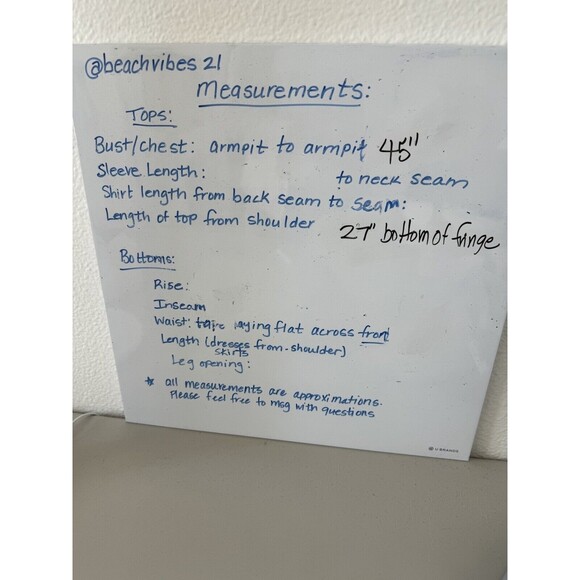 @beachvibes 21
Measurements:
TOPS:
Bust/chest: armpit to armpit 45"
Sleeve Length: to neck seam
Shirt length from back seam to seam:
Length of top from shoulder 27" bottom of fringe
Bottoms:
Rise:
Inseam
Waist: laying flat across front
Length (dresses from shoulder)
skirts
Leg opening:
* all measurements are approximations.
Please feel free to msg with questions
U BRANDS